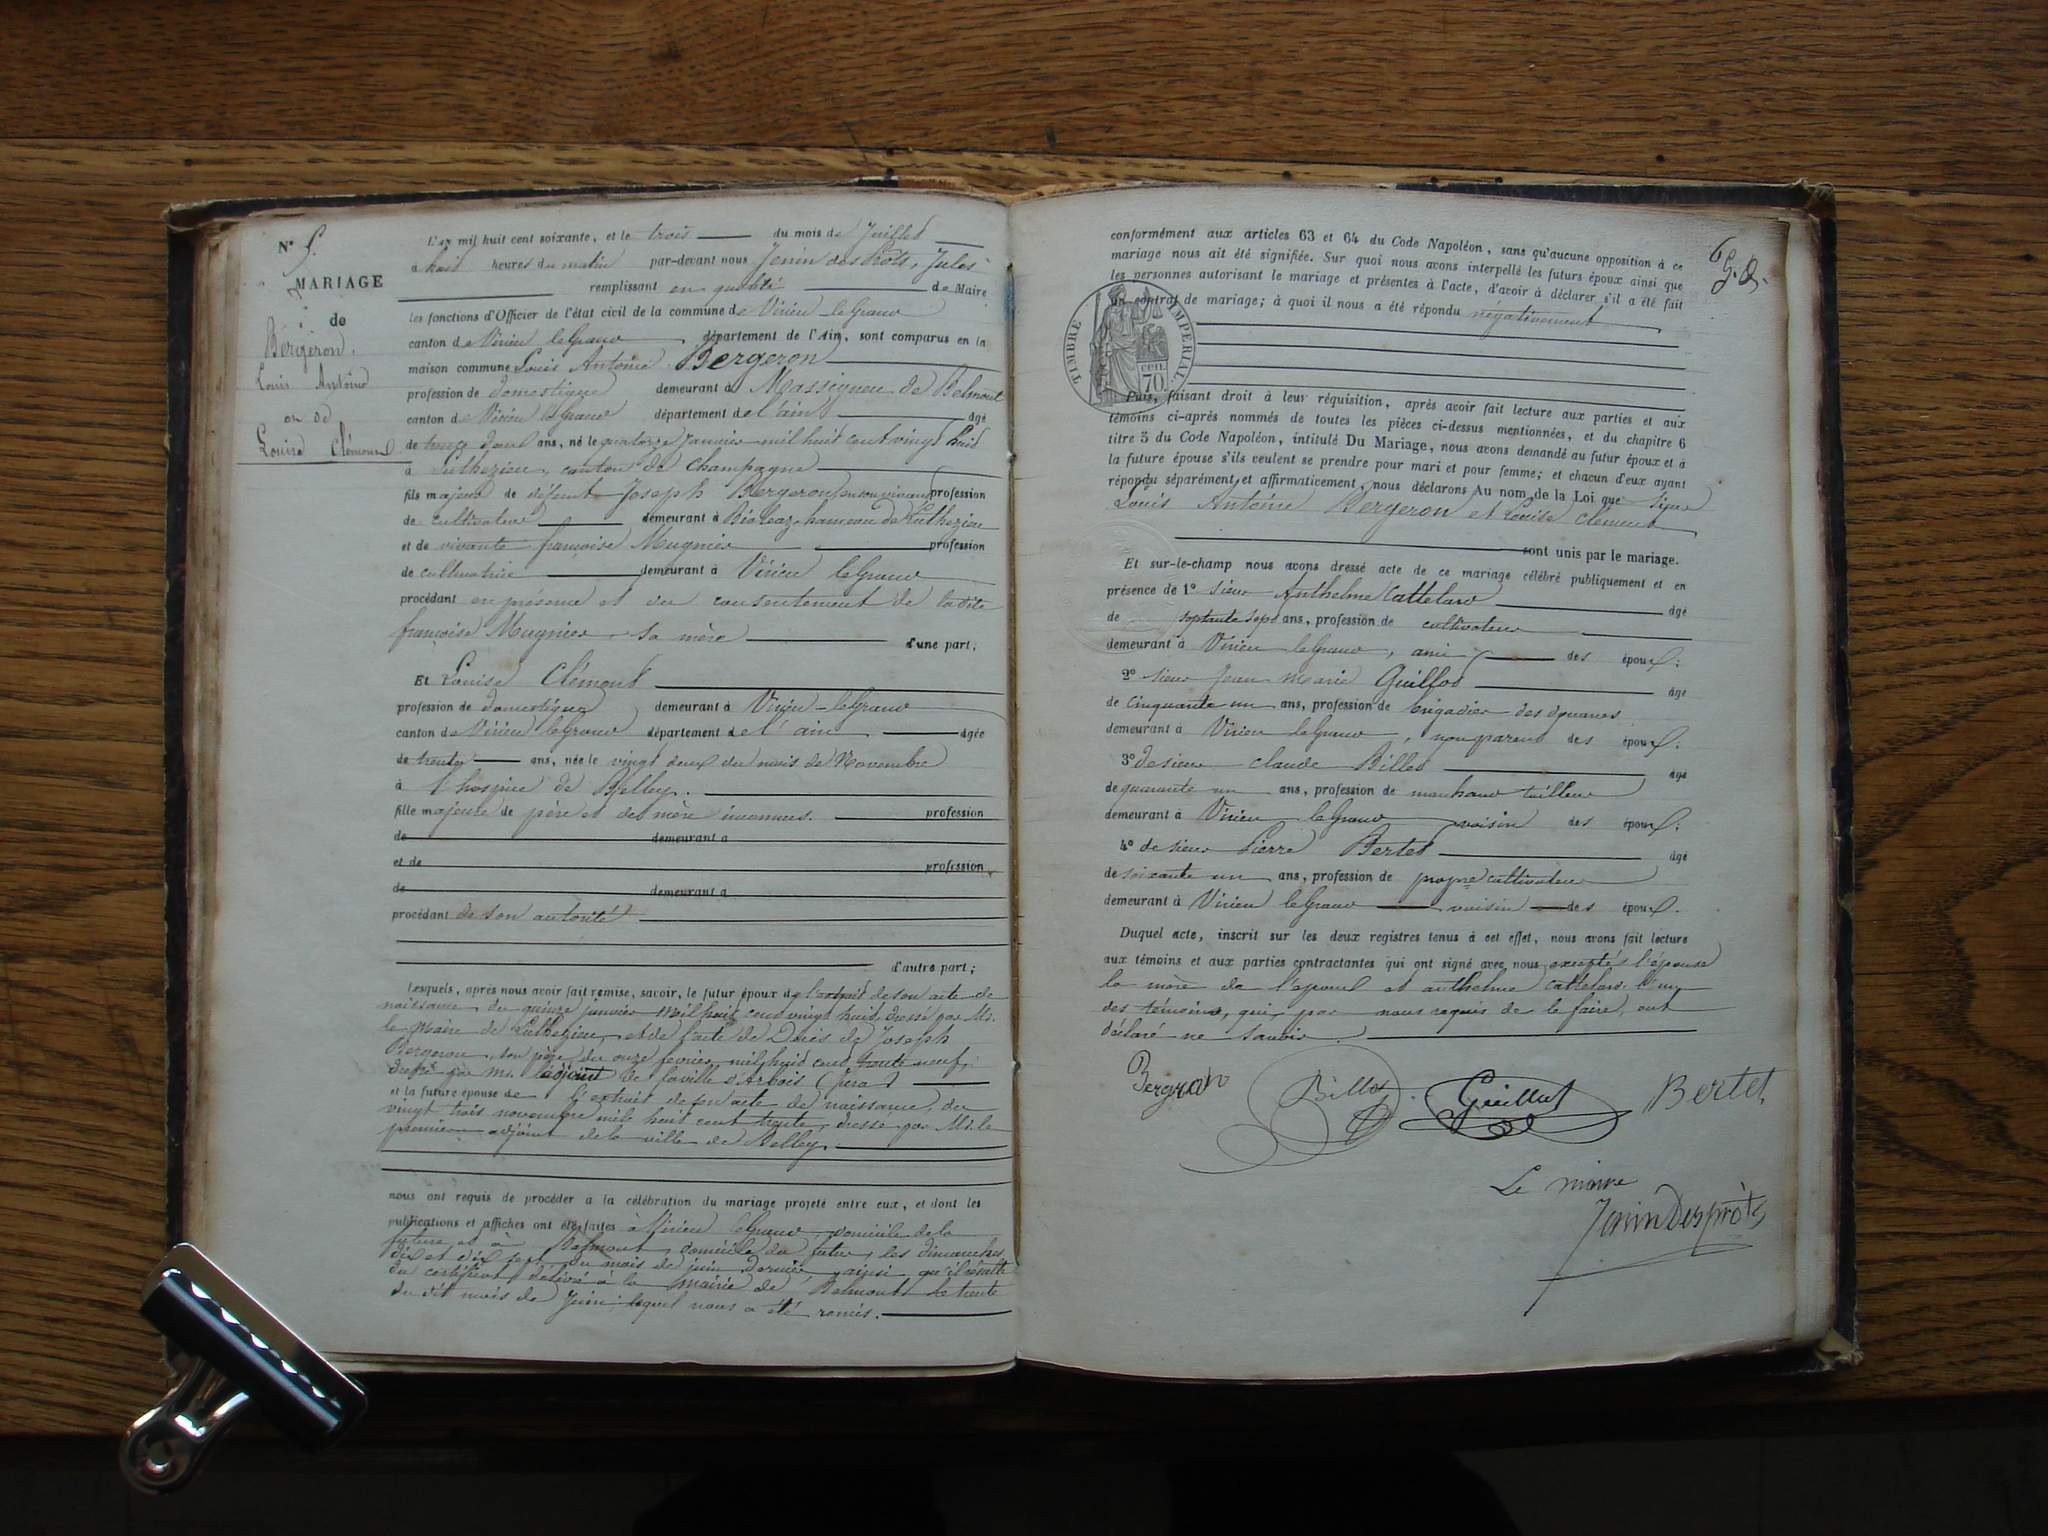 N° 5.
MARIAGE
de
Bergeron,
Louis Antoine
et de
Louise Clément
L'an mil huit cent soixante, et le trois du mois de Juillet
à huit heures du matin par-devant nous Jenin des Prots, Jules
remplissant en qualité de Maire
les fonctions d'Officier de l'état civil de la commune de Virieu-le-Grand
canton de Virieu le Grand département de l'Ain, sont comparus en la
maison commune Louis Antoine Bergeron
profession de domestique demeurant à Massignieu de Belmont
canton de Virieu le Grand département de l'ain âgé
de trente deux ans, né le quatorze Janvier mil huit cent vingt huit
à Luthezieu, canton de Champagne
fils majeur de défunt Joseph Bergeron, en son vivant profession
de cultivateur demeurant à Bioleaz, hameau de Luthezieu
et de vivante françoise Mugnier profession
de cultivatrice demeurant à Virieu le Grand
procédant en présence et du consentement de ladite
françoise Mugnier sa mère d'une part;
Et Louise Clément
profession de domestique demeurant à Virieu-le Grand
canton de Virieu le Grand département de l'ain âgée
de trente ans, née le vingt deux du mois de Novembre
à l'hospice de Belley.
fille majeure de père et de mère inconnus. profession
de demeurant à
et de profession
de demeurant à
procédant de son autorité
d'autre part;
Lesquels, après nous avoir fait remise, savoir, le futur époux de l'extrait de son acte de
naissance du quinze janvier mil huit cent vingt huit, dressé par Mr.
le Maire de Luthezieu, et de l'acte de Décès de Joseph
Bergeron, son père, du onze fevrier mil huit cent trente neuf,
dressé par mr. l'adjoint de la ville d'Arbois (Jura)
et la future épouse de l'extrait de son acte de naissance, du
vingt trois novembre mil huit cent trente, dressé par Mr. le
premier adjoint de la ville de Belley.
nous ont requis de procéder à la célébration du mariage projeté entre eux, et dont les
publications et affiches ont été faites à Virieu le Grand, domicile de la
future et à Belmont, domicile du futur, les dimanches
dix et dix sept du mois de juin dernier, ainsi qu'il résulte
du certificat délivré à la mairie de Belmont le trente
du dit mois de Juin lequel nous a été remis.
6
conformément aux articles 63 et 64 du Code Napoléon, sans qu'aucune opposition à ce
mariage nous ait été signifiée. Sur quoi nous avons interpellé les futurs époux ainsi que
les personnes autorisant le mariage et présentes à l'acte, d'avoir à déclarer s'il a été fait
un contrat de mariage; à quoi il nous a été répondu négativement
TIMBRE IMPÉRIAL
cen.
70
Puis, faisant droit à leur réquisition, après avoir fait lecture aux parties et aux
témoins ci-après nommés de toutes les pièces ci-dessus mentionnées, et du chapitre 6
titre 5 du Code Napoléon, intitulé Du Mariage, nous avons demandé au futur époux et à
la future épouse s'ils veulent se prendre pour mari et pour femme; et chacun d'eux ayant
répondu séparément et affirmativement, nous déclarons Au nom de la Loi que sieur
Louis Antoine Bergeron et Louise Clément
sont unis par le mariage.
Et sur-le-champ nous avons dressé acte de ce mariage célébré publiquement et en
présence de 1° sieur Anthelme Cattelard âgé
de septante sept ans, profession de cultivateur
demeurant à Virieu le Grand, ami des époux;
2° sieur Jean Marie Guillot âgé
de Cinquante un ans, profession de brigadier des douanes
demeurant à Virieu le Grand, non parent des époux.
3° de sieur Claude Billet âgé
de quarante un ans, profession de marchand tailleur
demeurant à Virieu le Grand voisin des époux;
4° de sieur Pierre Bertet âgé
de soixante un ans, profession de propre cultivateur
demeurant à Virieu le Grand voisin des époux.
Duquel acte, inscrit sur les deux registres tenus à cet effet, nous avons fait lecture
aux témoins et aux parties contractantes qui ont signé avec nous exceptés l'épouse
la mère de l'époux et anthelme Cattelard l'un
des témoins, qui, par nous requis de le faire, ont
déclaré ne savoir.
Bergeron Billet Guillot Bertet
Le maire
Jenin Desprots